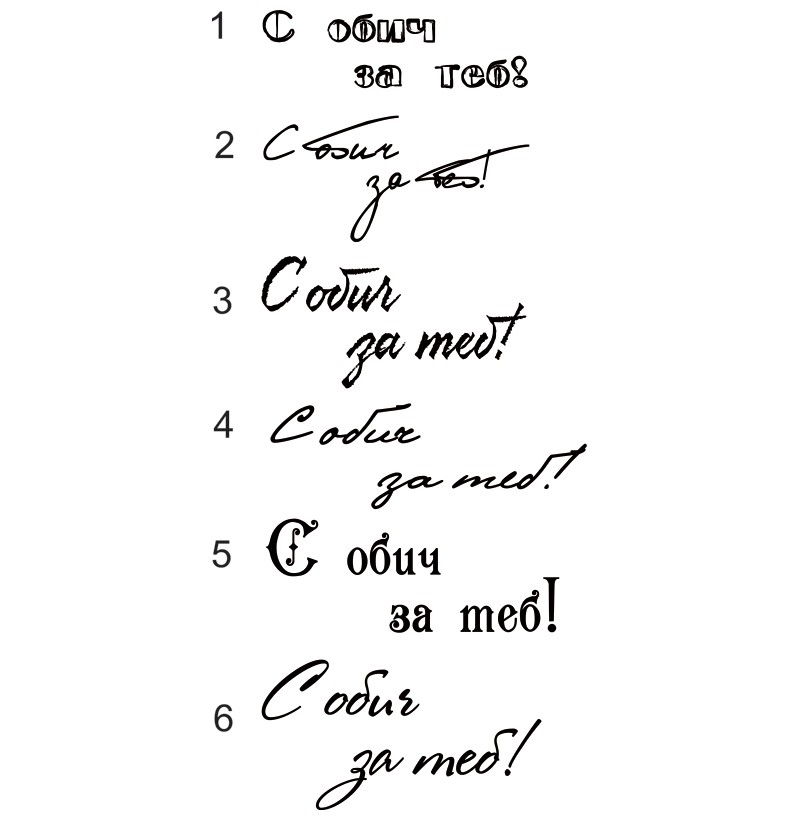 1 С обич
за теб!
2 С обич
за теб!
3 С обич
за теб!
4 С обич
за теб!
5 С обич
за теб!
6 С обич
за теб!